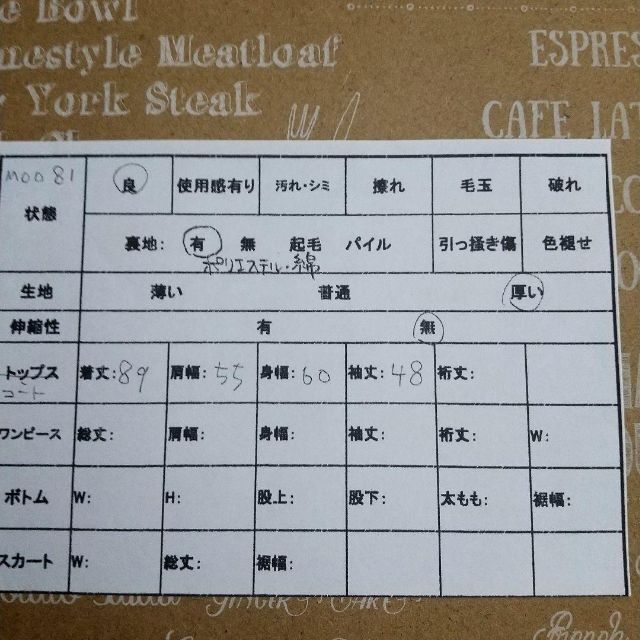 Bowl
Homestyle Meatloaf
ESPRES
York Steak
CAFE LAT
M0081
良 使用感有り 汚れ・シミ 擦れ 毛玉 破れ
状態
裏地: 有 無 起毛 パイル 引っ掻き傷 色褪せ
ポリエステル・綿
生地 薄い 普通 厚い
伸縮性 有 無
トップス 着丈:89 肩幅:55 身幅:60 袖丈:48 裄丈:
コート
ワンピース 総丈: 肩幅: 身幅: 袖丈: 裄丈: W:
ボトム W: H: 股上: 股下: 太もも: 裾幅:
スカート W: 総丈: 裾幅: